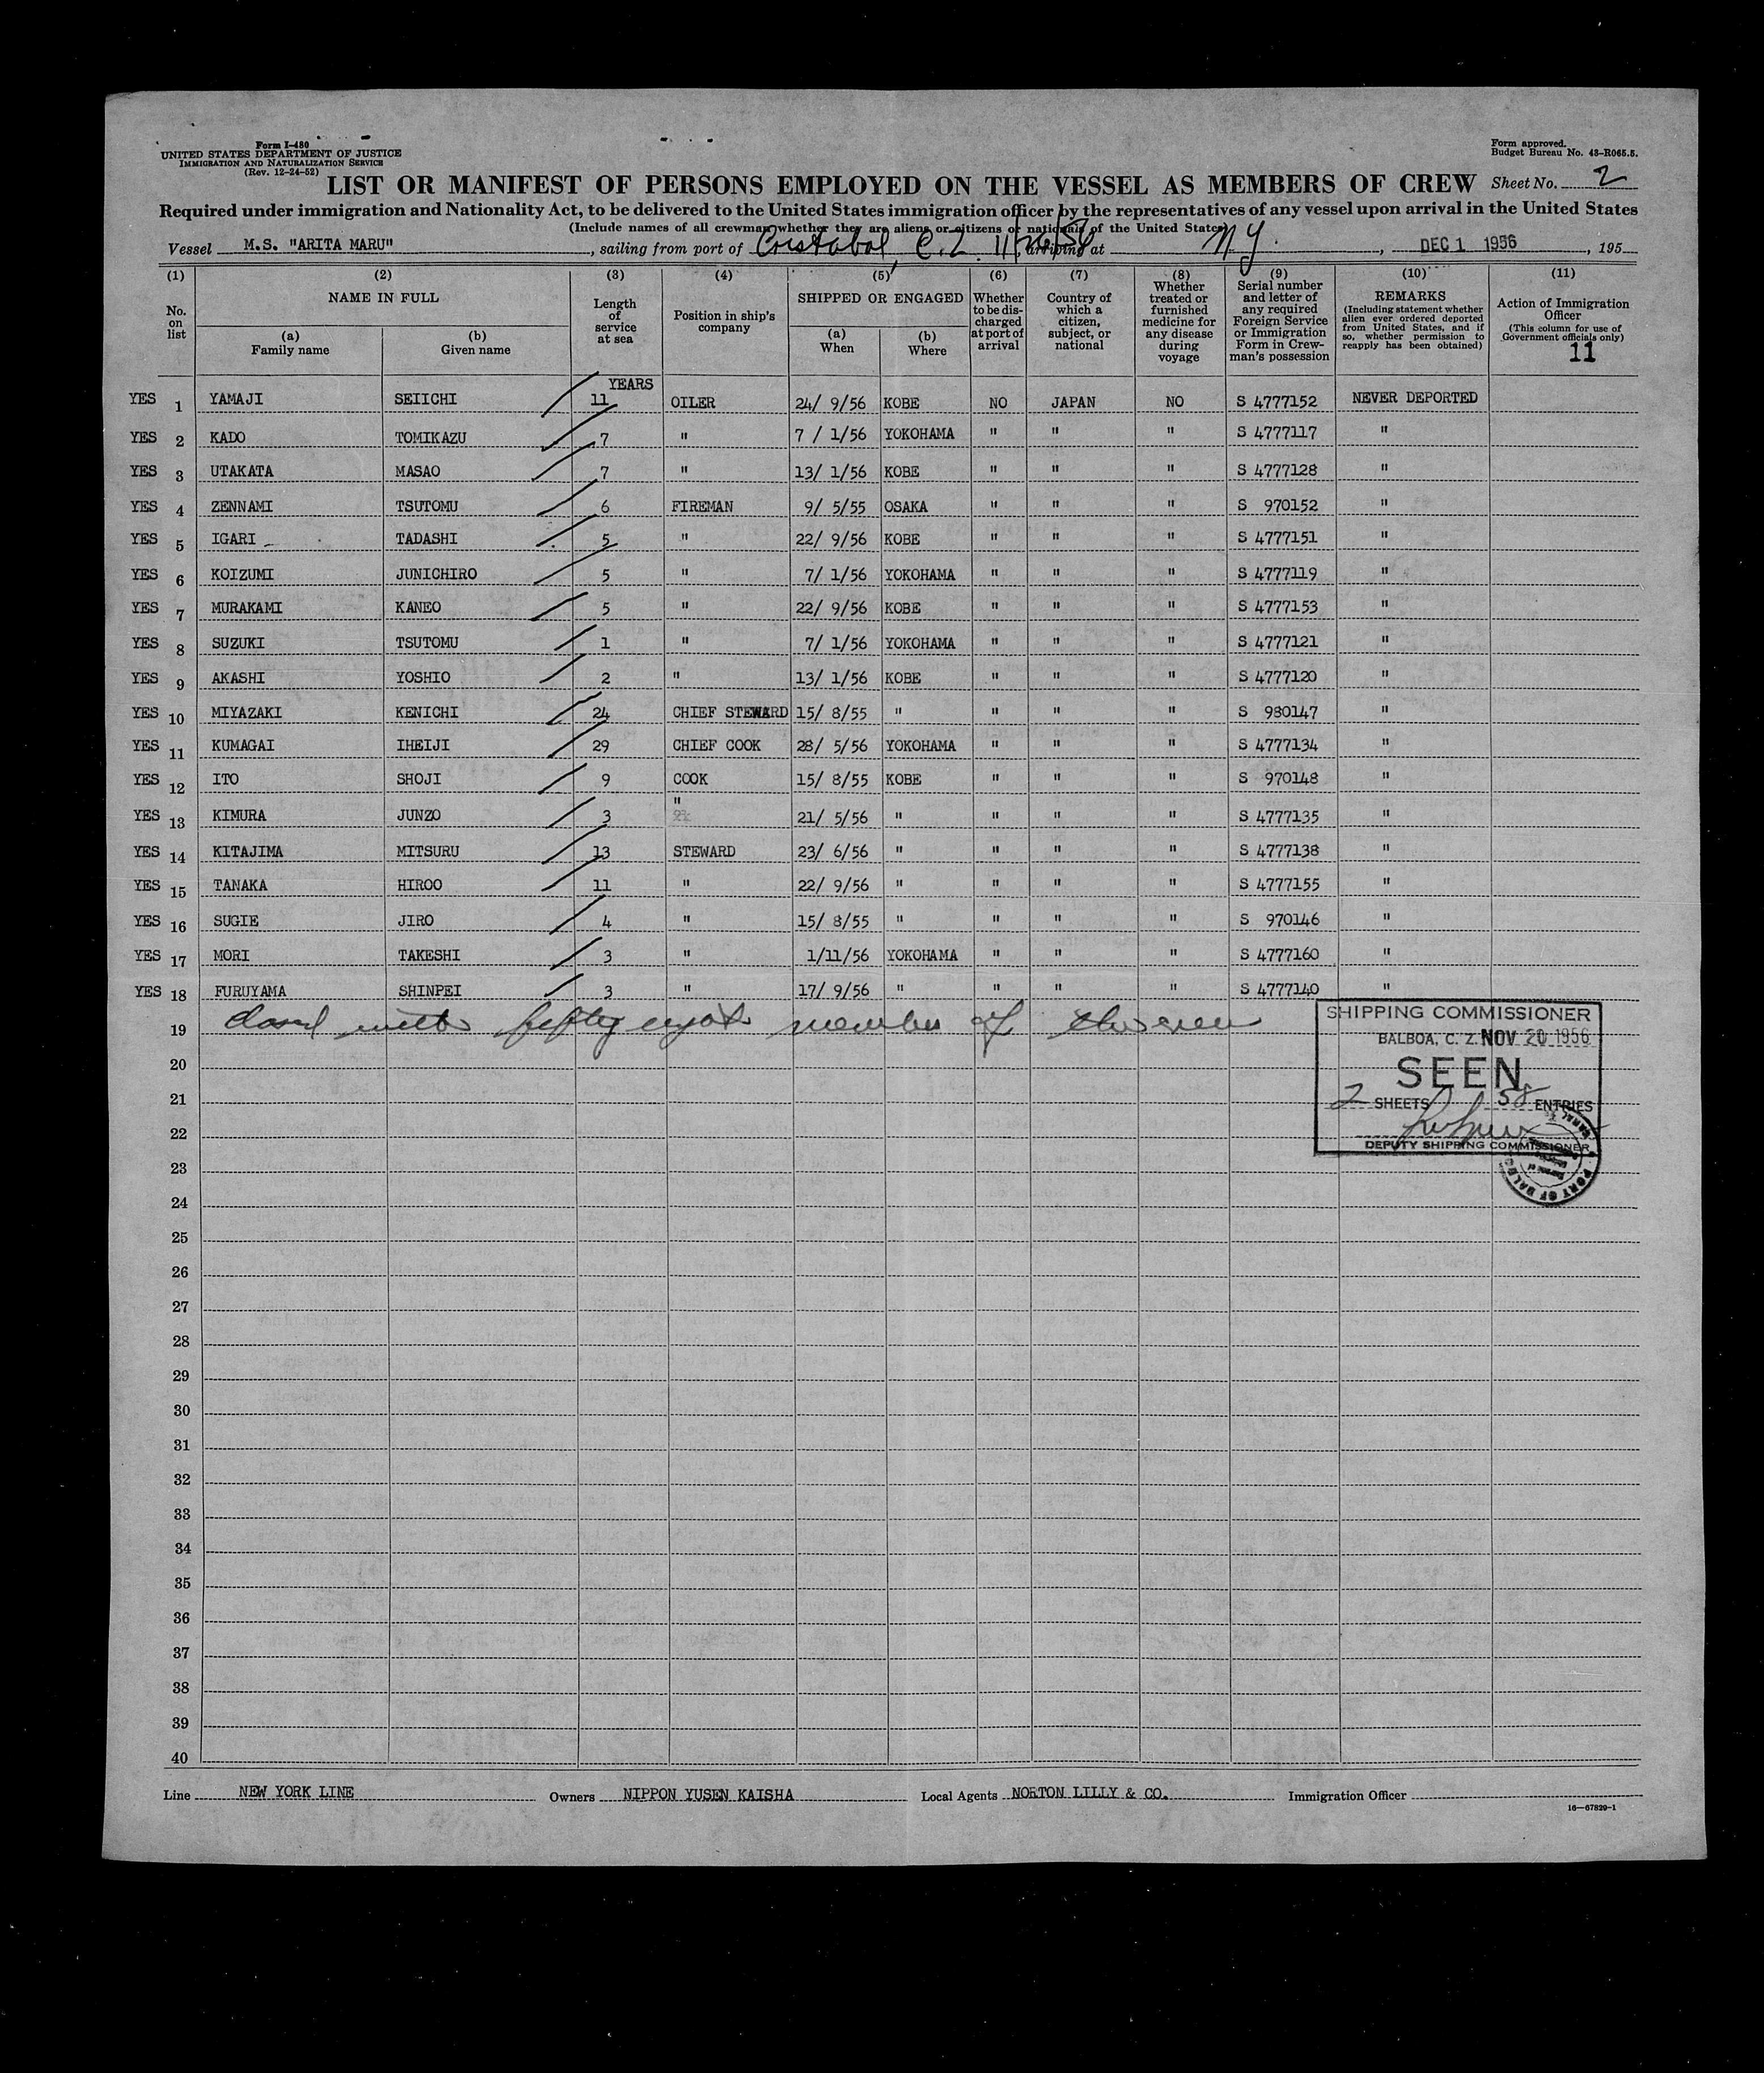 Form I-480
UNITED STATES DEPARTMENT OF JUSTICE
IMMIGRATION AND NATURALIZATION SERVICE
(Rev. 12-24-52)
Form approved.
Budget Bureau No. 43-R065.5.
LIST OR MANIFEST OF PERSONS EMPLOYED ON THE VESSEL AS MEMBERS OF CREW Sheet No. 2
Required under immigration and Nationality Act, to be delivered to the United States immigration officer by the representatives of any vessel upon arrival in the United States
(Include names of all crewman whether they are aliens or citizens or nationals of the United States)
Vessel M.S. "ARITA MARU", sailing from port of Cristobal, C.Z. arriving at N Y., DEC 1 1956, 195
(1) (2) (3) (4) (5) (6) (7) (8) (9) (10) (11)
No. on list
NAME IN FULL
(a) Family name
(b) Given name
Length of service at sea
Position in ship's company
SHIPPED OR ENGAGED
(a) When
(b) Where
Whether to be discharged at port of arrival
Country of which a citizen, subject, or national
Whether treated or furnished medicine for any disease during voyage
Serial number and letter of any required Foreign Service or Immigration Form in Crewman's possession
REMARKS
(Including statement whether alien ever ordered deported from United States, and if so, whether permission to reapply has been obtained)
Action of Immigration Officer
(This column for use of Government officials only)
11
YEARS
YES 1 YAMAJI SEIICHI 11 OILER 24/ 9/56 KOBE NO JAPAN NO S 4777152 NEVER DEPORTED
YES 2 KADO TOMIKAZU 7 " 7 / 1/56 YOKOHAMA " " " S 4777117 "
YES 3 UTAKATA MASAO 7 " 13/ 1/56 KOBE " " " S 4777128 "
YES 4 ZENNAMI TSUTOMU 6 FIREMAN 9/ 5/55 OSAKA " " " S 970152 "
YES 5 IGARI TADASHI 5 " 22/ 9/56 KOBE " " " S 4777151 "
YES 6 KOIZUMI JUNICHIRO 5 " 7/ 1/56 YOKOHAMA " " " S 4777119 "
YES 7 MURAKAMI KANEO 5 " 22/ 9/56 KOBE " " " S 4777153 "
YES 8 SUZUKI TSUTOMU 1 " 7/ 1/56 YOKOHAMA " " " S 4777121 "
YES 9 AKASHI YOSHIO 2 " 13/ 1/56 KOBE " " " S 4777120 "
YES 10 MIYAZAKI KENICHI 24 CHIEF STEWARD 15/ 8/55 " " " " S 980147 "
YES 11 KUMAGAI IHEIJI 29 CHIEF COOK 28/ 5/56 YOKOHAMA " " " S 4777134 "
YES 12 ITO SHOJI 9 COOK 15/ 8/55 KOBE " " " S 970148 "
YES 13 KIMURA JUNZO 3 " 21/ 5/56 " " " " S 4777135 "
YES 14 KITAJIMA MITSURU 13 STEWARD 23/ 6/56 " " " " S 4777138 "
YES 15 TANAKA HIROO 11 " 22/ 9/56 " " " " S 4777155 "
YES 16 SUGIE JIRO 4 " 15/ 8/55 " " " " S 970146 "
YES 17 MORI TAKESHI 3 " 1/11/56 YOKOHAMA " " " S 4777160 "
YES 18 FURUYAMA SHINPEI 3 " 17/ 9/56 " " " " S 4777140 "
19 closed with fifty eight member of the crew
SHIPPING COMMISSIONER
BALBOA, C. Z. NOV 20 1956
SEEN
2 SHEETS 58 ENTRIES
DEPUTY SHIPPING COMMISSIONER
PORT OF BALBOA
20
21
22
23
24
25
26
27
28
29
30
31
32
33
34
35
36
37
38
39
40
Line NEW YORK LINE Owners NIPPON YUSEN KAISHA Local Agents NORTON LILLY & CO. Immigration Officer
16—67829-1